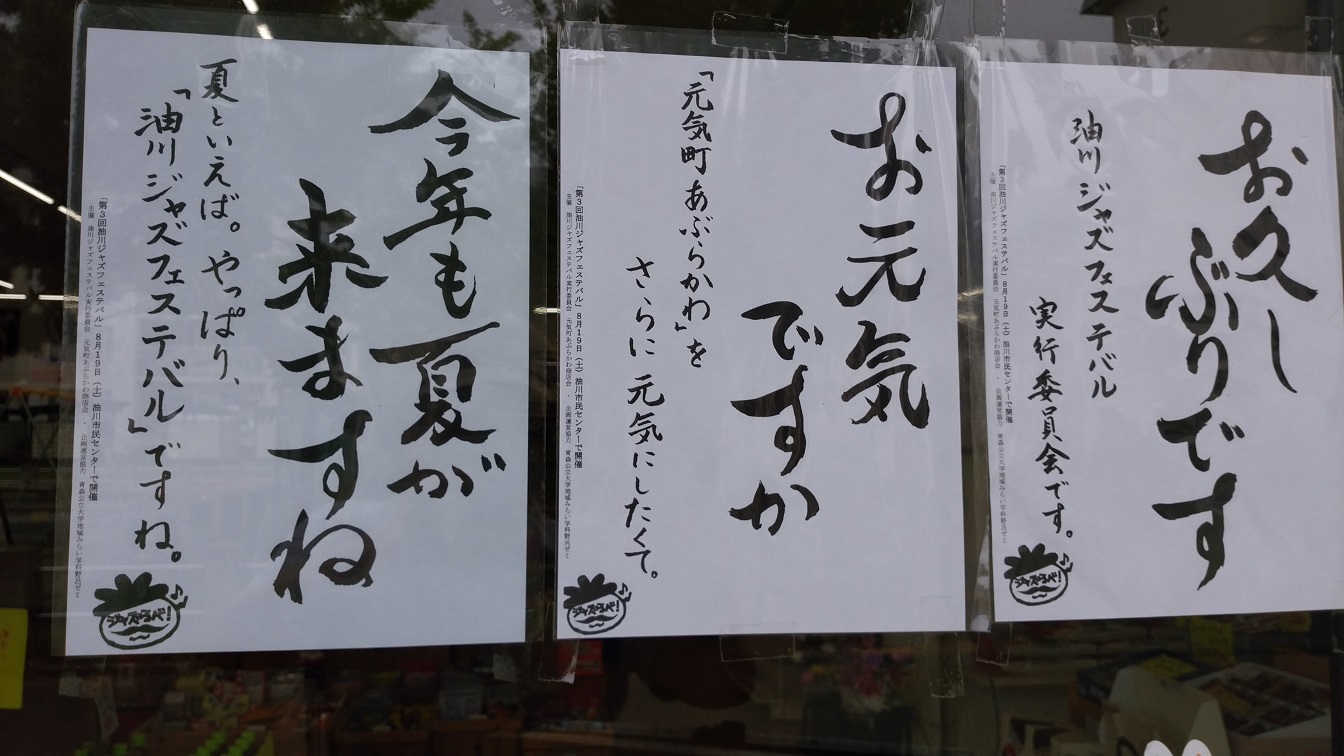 お久し
ぶりです
油川ジャズフェステバル
実行委員会です。
「第3回油川ジャズフェステバル」8月19日（土）油川市民センターで開催
主催 油川ジャズフェステバル実行委員会 元気町あぶらかわ商店会 ・ 企画運営協力 青森公立大学地域みらい学科野呂ゼミ
ジャズやるべ!
お元気
ですか
「元気町あぶらかわ」を
さらに元気にしたくて。
「第3回油川ジャズフェステバル」8月19日（土）油川市民センターで開催
主催 油川ジャズフェステバル実行委員会 元気町あぶらかわ商店会 ・ 企画運営協力 青森公立大学地域みらい学科野呂ゼミ
ジャズやるべ!
今年も夏が
来ますね
夏といえば。やっぱり、
「油川ジャズフェステバル」ですね。
「第3回油川ジャズフェステバル」8月19日（土）油川市民センターで開催
主催 油川ジャズフェステバル実行委員会 元気町あぶらかわ商店会 ・ 企画運営協力 青森公立大学地域みらい学科野呂ゼミ
ジャズやるべ!